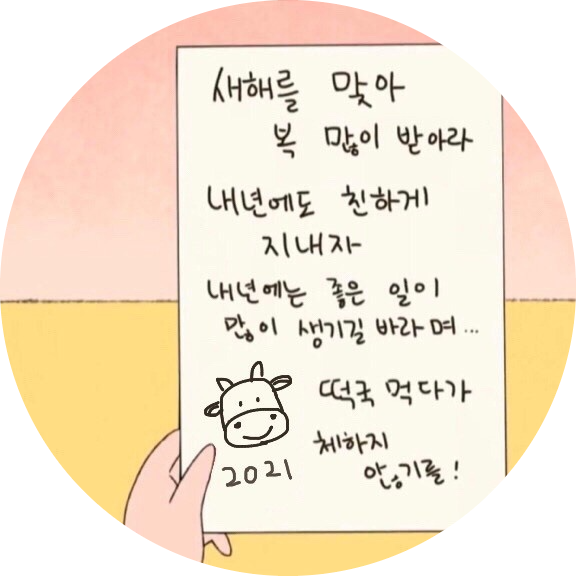 새해를 맞아
복 많이 받아라
내년에도 친하게
지내자
내년에는 좋은 일이
많이 생기길 바라며...
떡국 먹다가
체하지
않기를!
2021